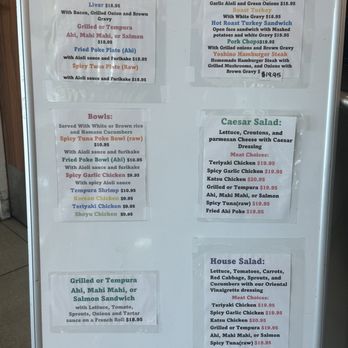 Liver $18.95
With Bacon, Grilled Onion and Brown
Gravy
Grilled or Tempura
Ahi, Mahi Mahi, or Salmon
$18.95
Fried Poke Plate (Ahi)
with Aioli Sauce and Furikake $18.95
Spicy Tuna Plate (Raw)
with Aioli sauce and furikake $18.95
Bowls:
Served With White or Brown rice
and Namasu Cucumbers
Spicy Tuna Poke Bowl (raw)
$16.95
With Aioli sauce and furikake
Fried Poke Bowl (Ahi) $16.95
With Aioli sauce and furikake
Spicy Garlic Chicken $9.95
With spicy Aioli sauce
Tempura Shrimp $10.95
Korean Chicken $9.95
Teriyaki Chicken $9.95
Shoyu Chicken $9.95
Grilled or Tempura
Ahi, Mahi Mahi, or
Salmon Sandwich
with Lettuce, Tomato,
Sprouts, Onions and Tartar
sauce on a French Roll $18.95
Garlic Aioli and Green Onion $18.95
Roast Turkey
With White Gravy $18.95
Hot Roast Turkey Sandwich
Open face sandwich with Mashed
potatoes and white Gravy $18.95
Pork Chops $19.95
With Grilled onions and Brown gravy
Yoshino Hamburger Steak
Homemade Hamburger Steak with
Grilled Mushrooms, and Onions with
Brown Gravy $19.95
Caesar Salad:
Lettuce, Croutons, and
parmesan Cheese with Caesar
Dressing
Meat Choices:
Teriyaki Chicken $19.95
Spicy Garlic Chicken $19.95
Katsu Chicken $20.95
Grilled or Tempura $19.95
Ahi, Mahi Mahi, or Salmon
Spicy Tuna(raw) $19.95
Fried Ahi Poke $19.95
House Salad:
Lettuce, Tomatoes, Carrots,
Red Cabbage, Sprouts, and
Cucumbers with our Oriental
Vinaigrette dressing
Meat Choices:
Teriyaki Chicken $19.95
Spicy Garlic Chicken $19.95
Katsu Chicken $20.95
Grilled or Tempura $19.95
Ahi, Mahi Mahi, or Salmon
Spicy Tuna(raw) $19.95